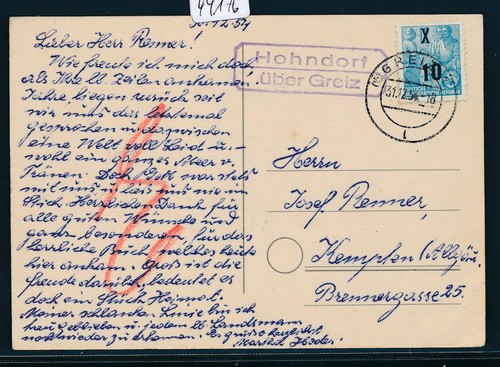 44116
30.12.54
Lieber Herr Renner!
Wie freute ich mich doch
als Ihre lb. Zeilen ankamen!
Jahre liegen zurück seit
wir uns das letztemal
gesprochen u. dazwischen
eine Welt voll Leid u. –
wohl ein ganzes Meer v.
Tränen. Doch Gott war stets
mit uns u. liess uns nie im
Stich. Herzlichen Dank für
alle guten Wünsche und
ganz besonderen, für das
herrliche Buch, welches heute
hier ankam. Groß ist die
Freude darüber, bedeutet es
doch ein Stück Heimat.
Meiner schlanken Linie bin ich
treu geblieben u. jedem lb. Landsmann
noch wieder zu erkennen. Es grüßt herzlichst
Hohndorf
über Greiz
X 10
DEUTSCHE DEMOKRATISCHE REPUBLIK
GREIZ
31.12.54
Herrn
Josef Renner,
Kempten (Allgäu.
Brennergasse 25.